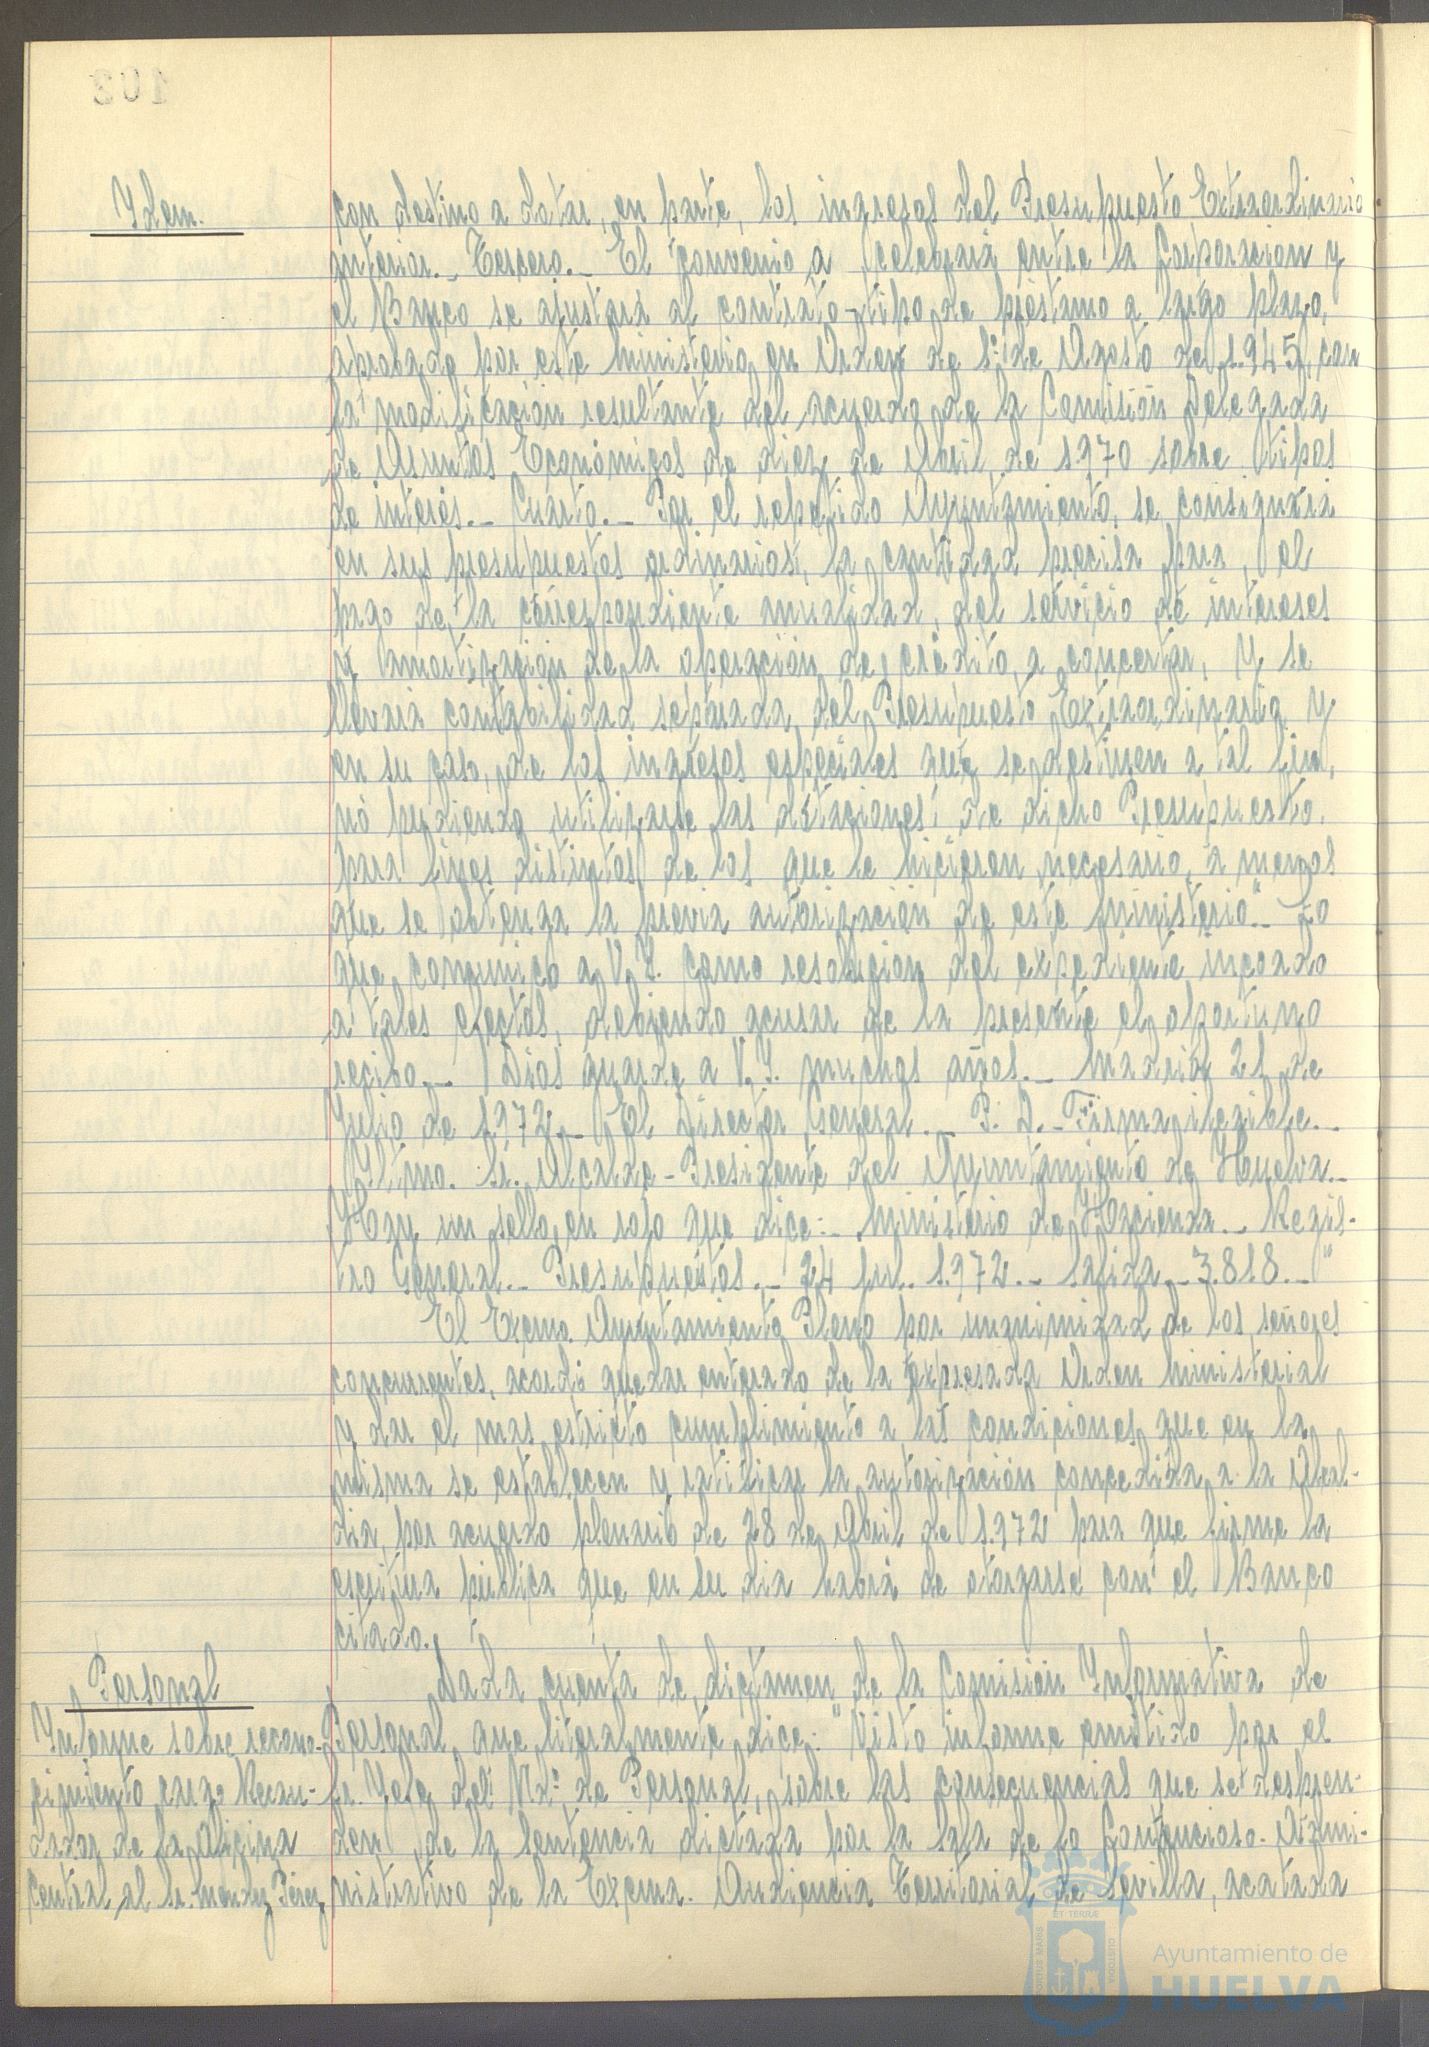 Idem.
con destino a dotar, en parte, los ingresos del Presupuesto Extraordinario
anterior.- Tercero.- El convenio a celebrar entre la Corporacion y
el Banco se ajustará al contrato-tipo de préstamo a largo plazo,
aprobado por este Ministerio en Orden de 1º de Agosto de 1.945, con
la modificación resultante del acuerdo de la Comisión Delegada
de Asuntos Económicos de diez de Abril de 1970 sobre tipos
de interés.- Cuarto.- Por el repetido Ayuntamiento, se consignará
en sus presupuestos ordinarios, la cantidad precisa para el
pago de la correspondiente anualidad, del servicio de intereses
y amortización de la operación de crédito, a concertar, y se
llevará contabilidad separada del Presupuesto Extraordinario y
en su caso, de los ingresos especiales que se destinen a tal fin,
no pudiendo utilizarse las dotaciones de dicho Presupuesto,
para fines distintos de los que le hicieron necesario, a menos
que se obtenga la previa autorización de este Ministerio".- Lo
que comunico a V. I. como resolución del expediente incoado
a tales efectos, debiendo acusar de la presente el oportuno
recibo.- Dios guarde a V. I. muchos años.- Madrid, 21 de
Julio de 1.972.- El Director General.- P. D.- Firma ilegible.-
Iltmo. Sr. Alcalde-Presidente del Ayuntamiento de Huelva.-
Hay un sello en rojo que dice:- Ministerio de Hacienda.- Regis-
tro General.- Presupuestos.- 24 Jul. 1.972.- Salida.- 3.818.-"
El Excmo. Ayuntamiento Pleno por unanimidad de los señores
concurrentes, acordó quedar enterado de la expresada Orden Ministerial
y dar el mas estricto cumplimiento a las condiciones que en la
misma se establecen y ratificar la autorización concedida a la Alcal-
dia, por acuerdo plenario de 28 de Abril de 1.972 para que firme la
escritura pública que en su dia habrá de otorgarse con el Banco
citado.
Personal
Informe sobre recono-
cimiento cargo Recau-
dador de la Oficina
Central al Sr. Mendez Pérez
Dada cuenta de dictamen de la Comisión Informativa de
Personal que literalmente dice: "Visto informe emitido por el
Sr. Jefe del Ndº de Personal, sobre las consecuencias que se despren-
den de la Sentencia dictada por la Sala de lo Contencioso-Admi-
nistrativo de la Excma. Audiencia Territorial de Sevilla, acatada
Ayuntamiento de
HUELVA